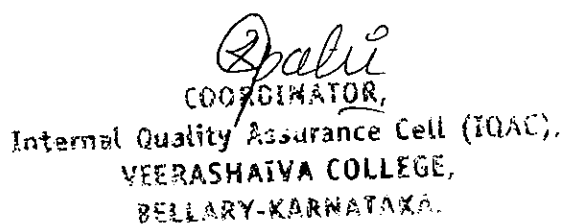 COORDINATOR,
Internal Quality Assurance Cell (IQAC),
VEERASHAIVA COLLEGE,
BELLARY-KARNATAKA.